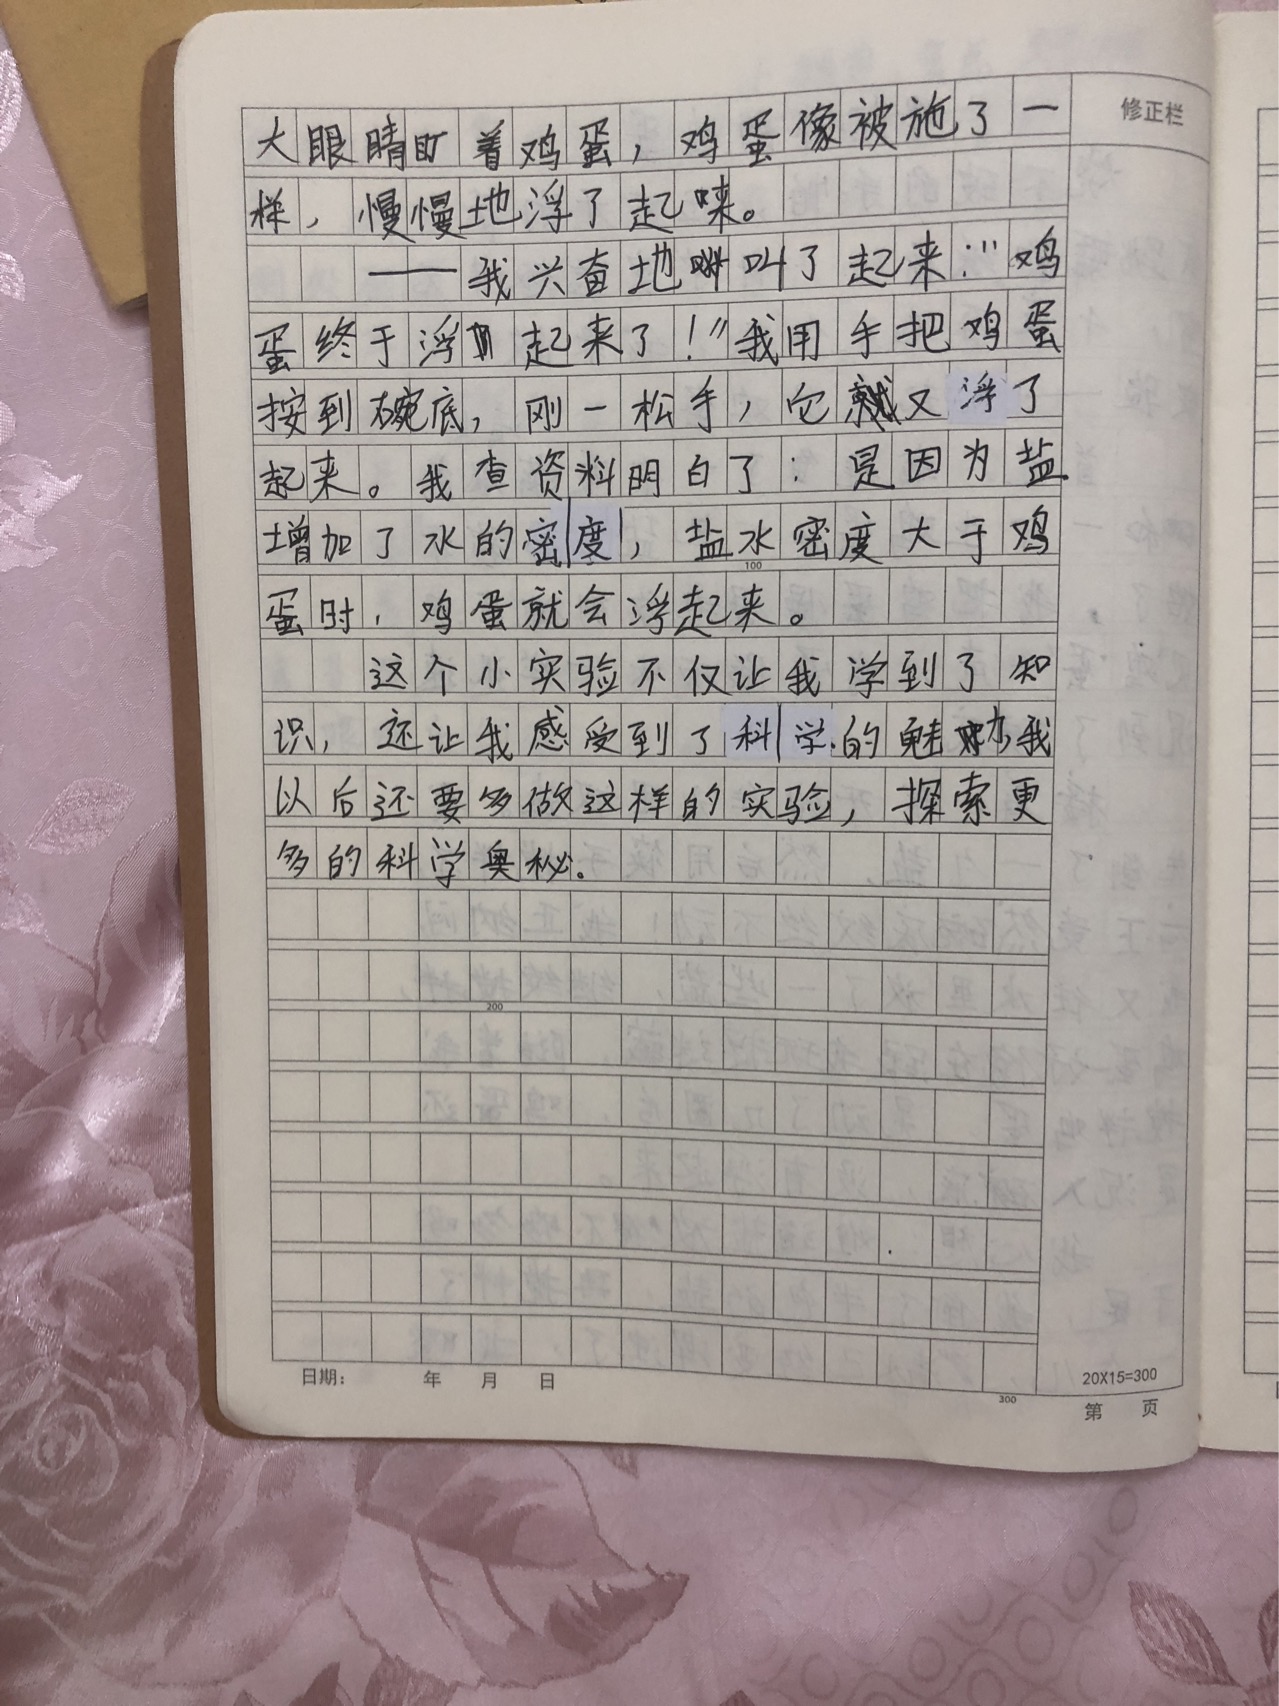 大眼睛盯着鸡蛋，鸡蛋像被施了一
修正栏
样，慢慢地浮了起来。
——我兴奋地叫了起来：“鸡
蛋终于浮起来了！”我用手把鸡蛋
按到碗底，刚一松手，它就又浮了
起来。我查资料明白了：是因为盐
增加了水的密度，盐水密度大于鸡
100
蛋时，鸡蛋就会浮起来。
这个小实验不仅让我学到了知
识，还让我感受到了科学的魅力，我
以后还要多做这样的实验，探索更
多的科学奥秘。
200
日期： 年 月 日
20X15=300
300
第 页